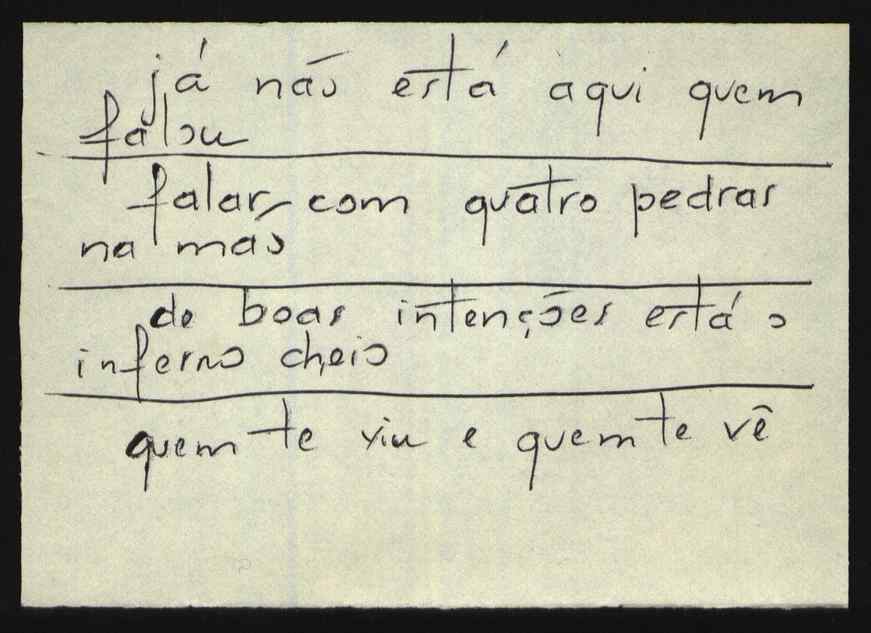 já não está aqui quem
falou
falar com quatro pedras
na mão
de boas intenções está o
inferno cheio
quem te viu e quem te vê